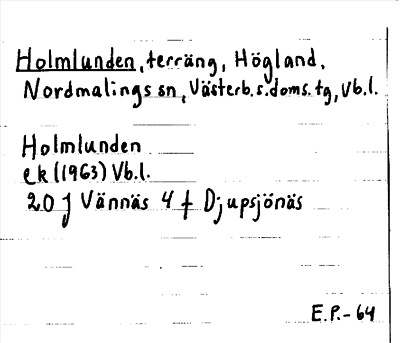 Holmlunden, terräng, Högland,
Nordmalings sn, Västerb. s. doms. tg, Vb.l.
Holmlunden
ek (1963) Vb.l.
20 J Vännäs 4 f Djupsjönäs
E.P.-64